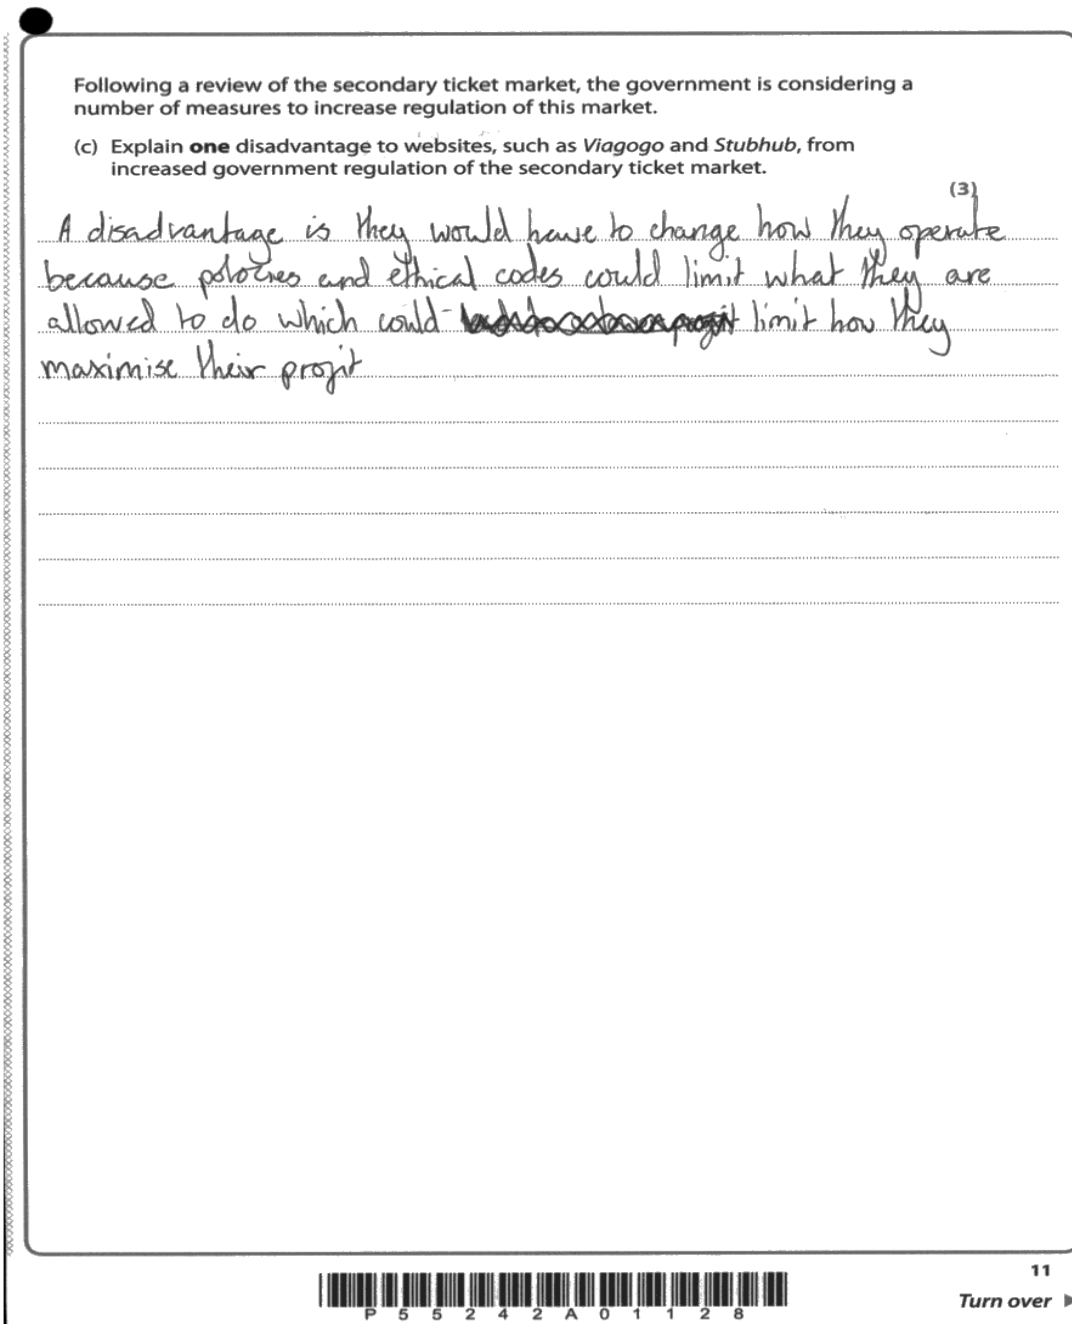 Following a review of the secondary ticket market, the government is considering a
number of measures to increase regulation of this market.
(c) Explain one disadvantage to websites, such as Viagogo and Stubhub, from
increased government regulation of the secondary ticket market.
(3)
A disadvantage is they would have to change how they operate
because and ethical codes could limit what they are
allowed to do which could limit how they
maximise their profit
11
P55242A01128
Turn over